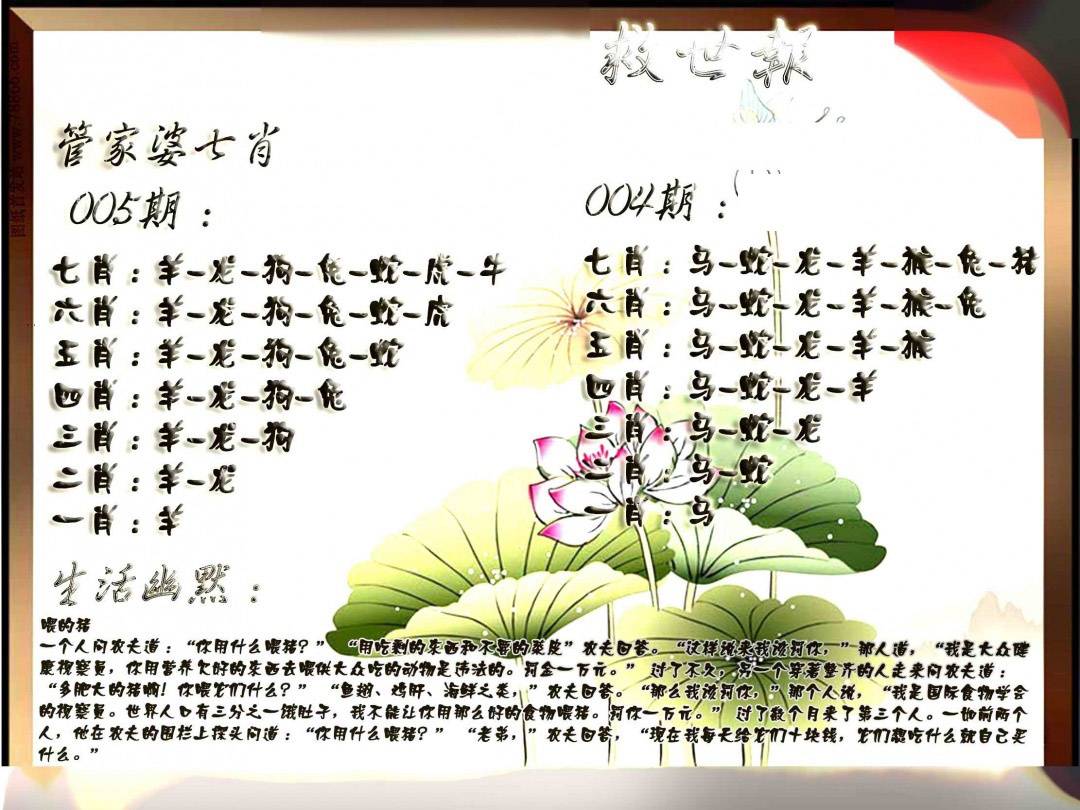 救世報
管家婆七肖
005期：
七肖：羊-龙-狗-兔-蛇-虎-牛
六肖：羊-龙-狗-兔-蛇-虎
五肖：羊-龙-狗-兔-蛇
四肖：羊-龙-狗-兔
三肖：羊-龙-狗
二肖：羊-龙
一肖：羊
004期：
七肖：马-蛇-龙-羊-猴-兔-猪
六肖：马-蛇-龙-羊-猴-兔
五肖：马-蛇-龙-羊-猴
四肖：马-蛇-龙-羊
三肖：马-蛇-龙
二肖：马-蛇
一肖：马
生活幽默：
喂的猪
一个人问农夫道：“你用什么喂猪？” “用吃剩的东西和不要的菜皮”农夫回答。“这样说来我该罚你，”那人道，“我是大众健
康视察员，你用营养欠好的东西去喂供大众吃的动物是违法的。罚金一万元。” 过了不久，另一个穿著整齐的人走来问农夫道：
“多肥大的猪啊！你喂它们什么？” “鱼翅、鸡肝、海鲜之类，”农夫回答。“那么我该罚你，”那个人说，“我是国际食物学会
的视察员。世界人口有三分之一饿肚子，我不能让你用那么好的食物喂猪。罚你一万元。” 过了数个月来了第三个人。一如前两个
人，他在农夫的围栏上探头问道：“你用什么喂猪？” “老弟，”农夫回答，“现在我每天给它们十块钱，它们想吃什么就自己买
什么。”